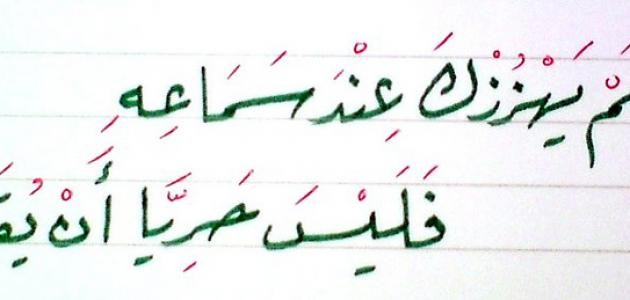 يَهْزُزْكَ عِنْدَ سَمَاعِهِ
فَلَيْسَ حَرِيًّا أَنْ